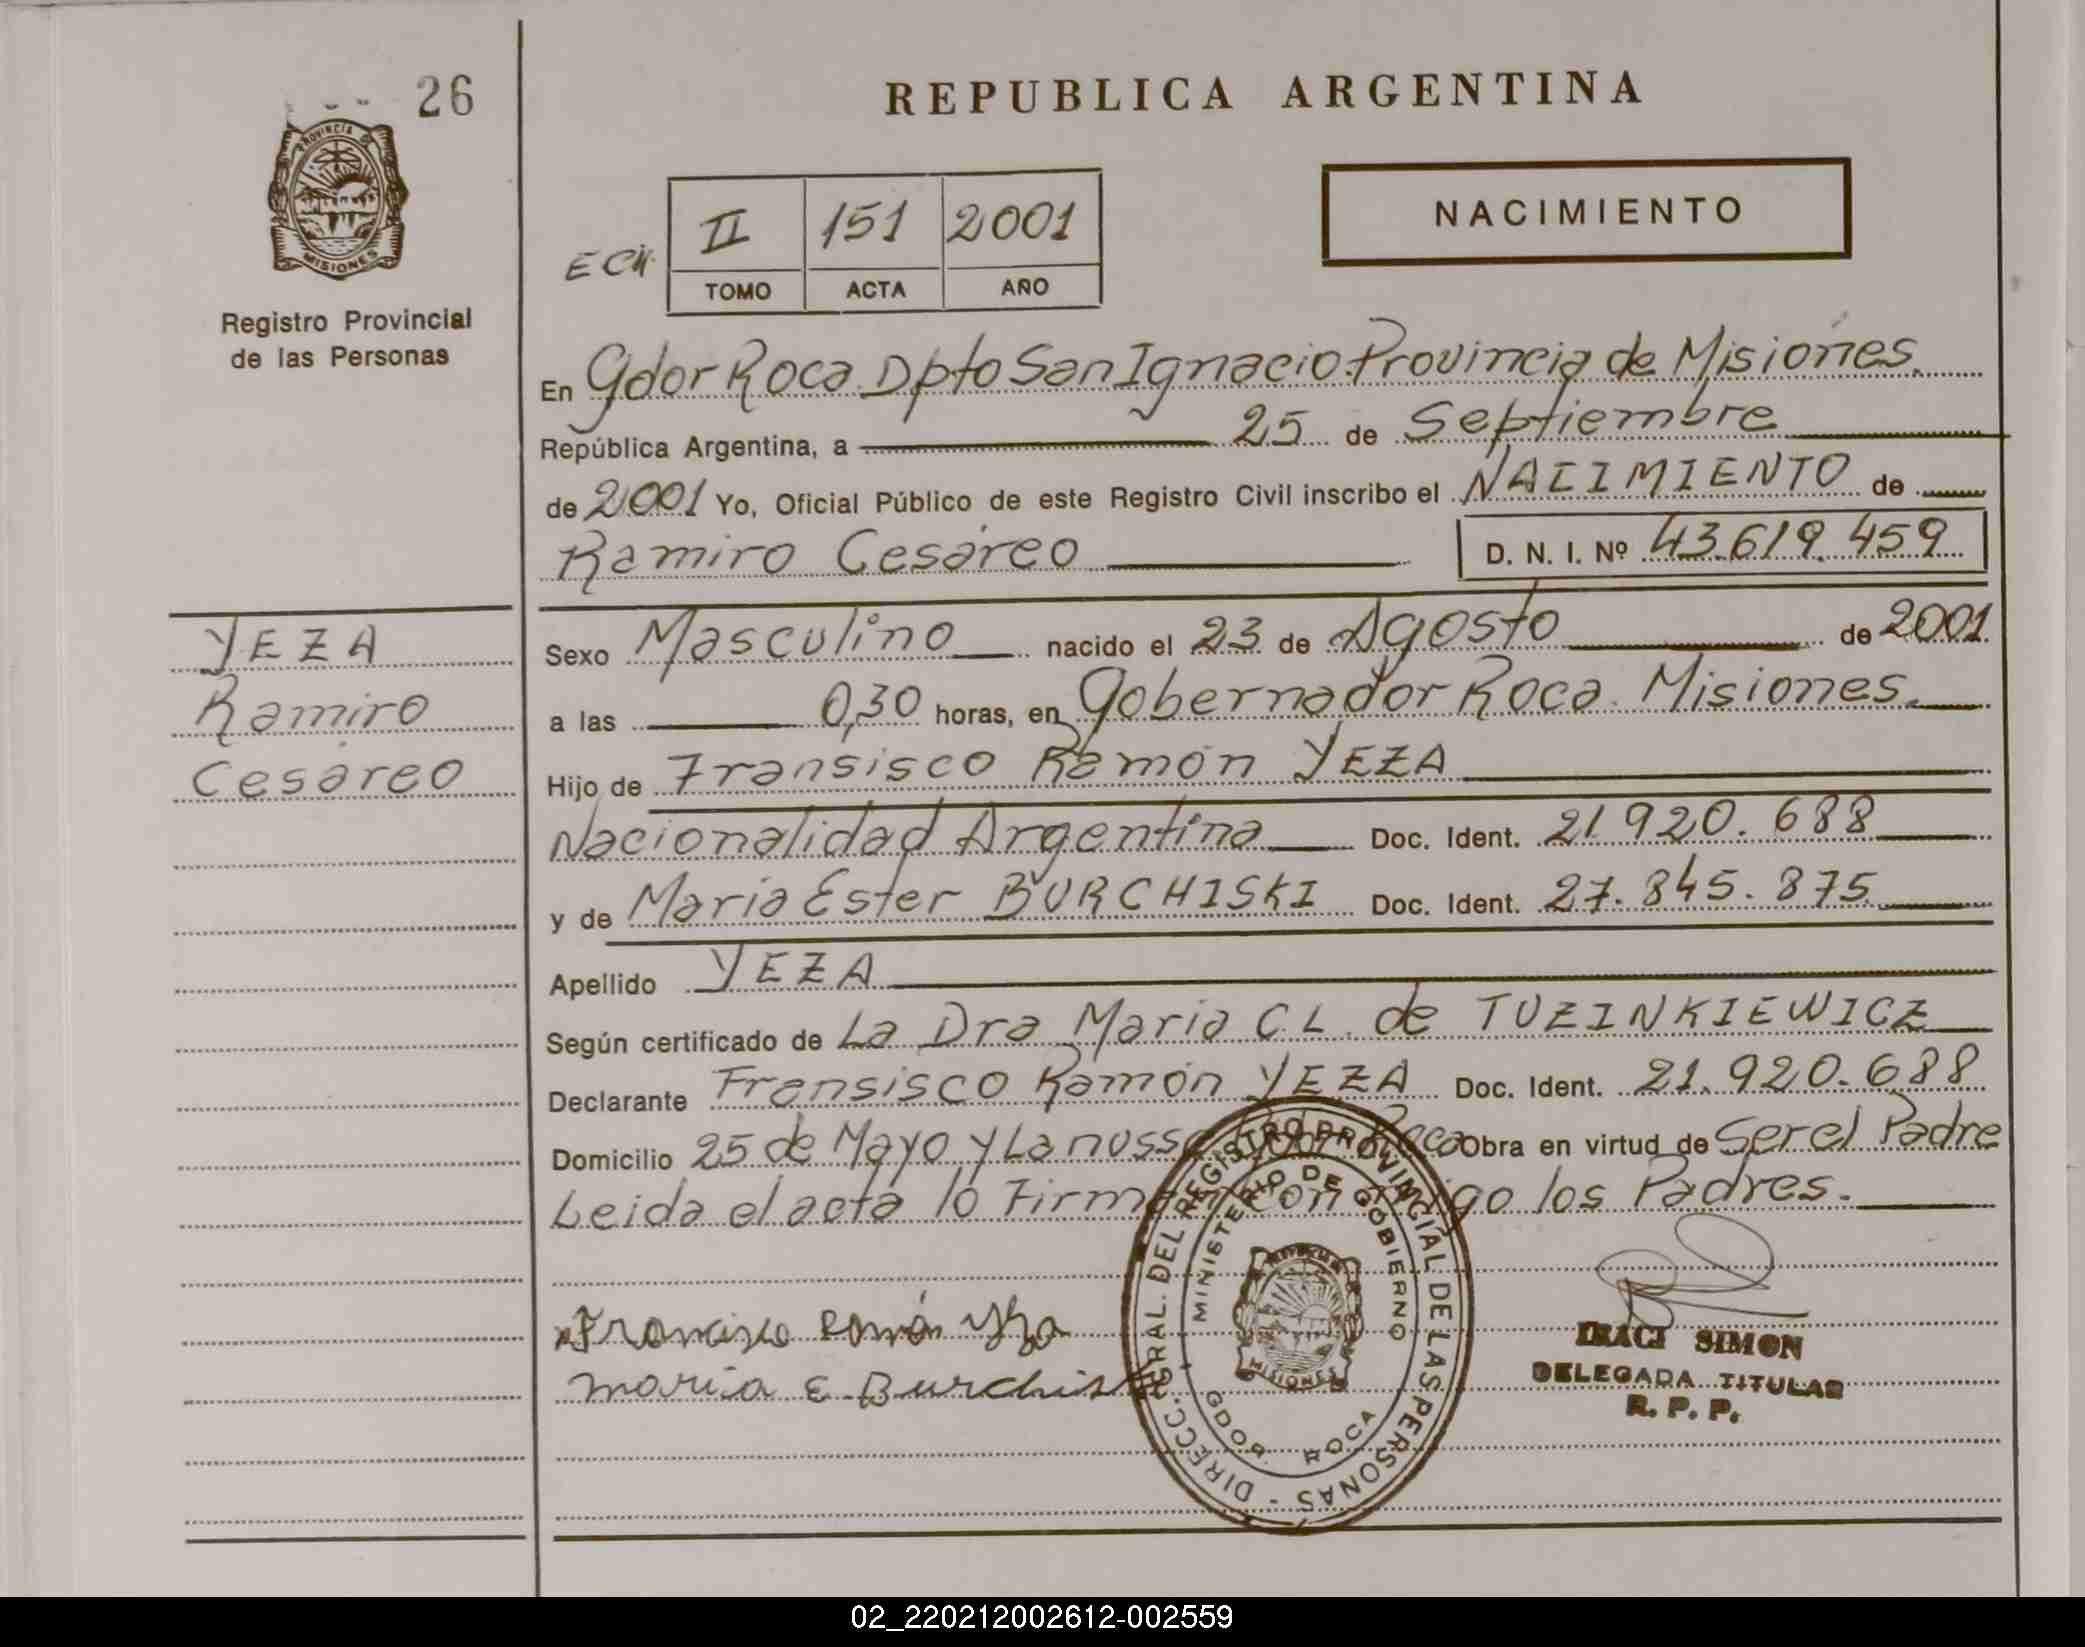 26
REPUBLICA ARGENTINA
PROVINCIA DE
MISIONES
II 151 2001
TOMO ACTA AÑO
NACIMIENTO
Registro Provincial
de las Personas
En Gdor Roca Dpto San Ignacio Provincia de Misiones.
República Argentina, a 25 de Septiembre
de 2001 Yo, Oficial Público de este Registro Civil inscribo el NACIMIENTO de
Ramiro Cesáreo D. N. I. Nº 43.619.459
YEZA
Ramiro
Cesáreo
Sexo Masculino nacido el 23 de Agosto de 2001
a las 0,30 horas, en Gobernador Roca. Misiones.
Hijo de Fransisco Ramón YEZA
Nacionalidad Argentina Doc. Ident. 21.920.688
y de Maria Ester BURCHISKI Doc. Ident. 27.845.875
Apellido YEZA
Según certificado de La Dra Maria C.L. de TUZINKIEWICZ
Declarante Fransisco Ramón YEZA Doc. Ident. 21.920.688
Domicilio 25 de Mayo y Lanusse Gdor Roca Obra en virtud de Ser el Padre
Leida el acta lo Firman conmigo los Padres.
Francisco Ramón Yeza
Maria E Burchiski
DIRECC. GRAL. DEL REGISTRO PROVINCIAL DE LAS PERSONAS -
MINISTERIO DE GOBIERNO
MISIONES
GDOR. ROCA
IRACI SIMON
DELEGADA TITULAR
R. P. P.
02_220212002612-002559